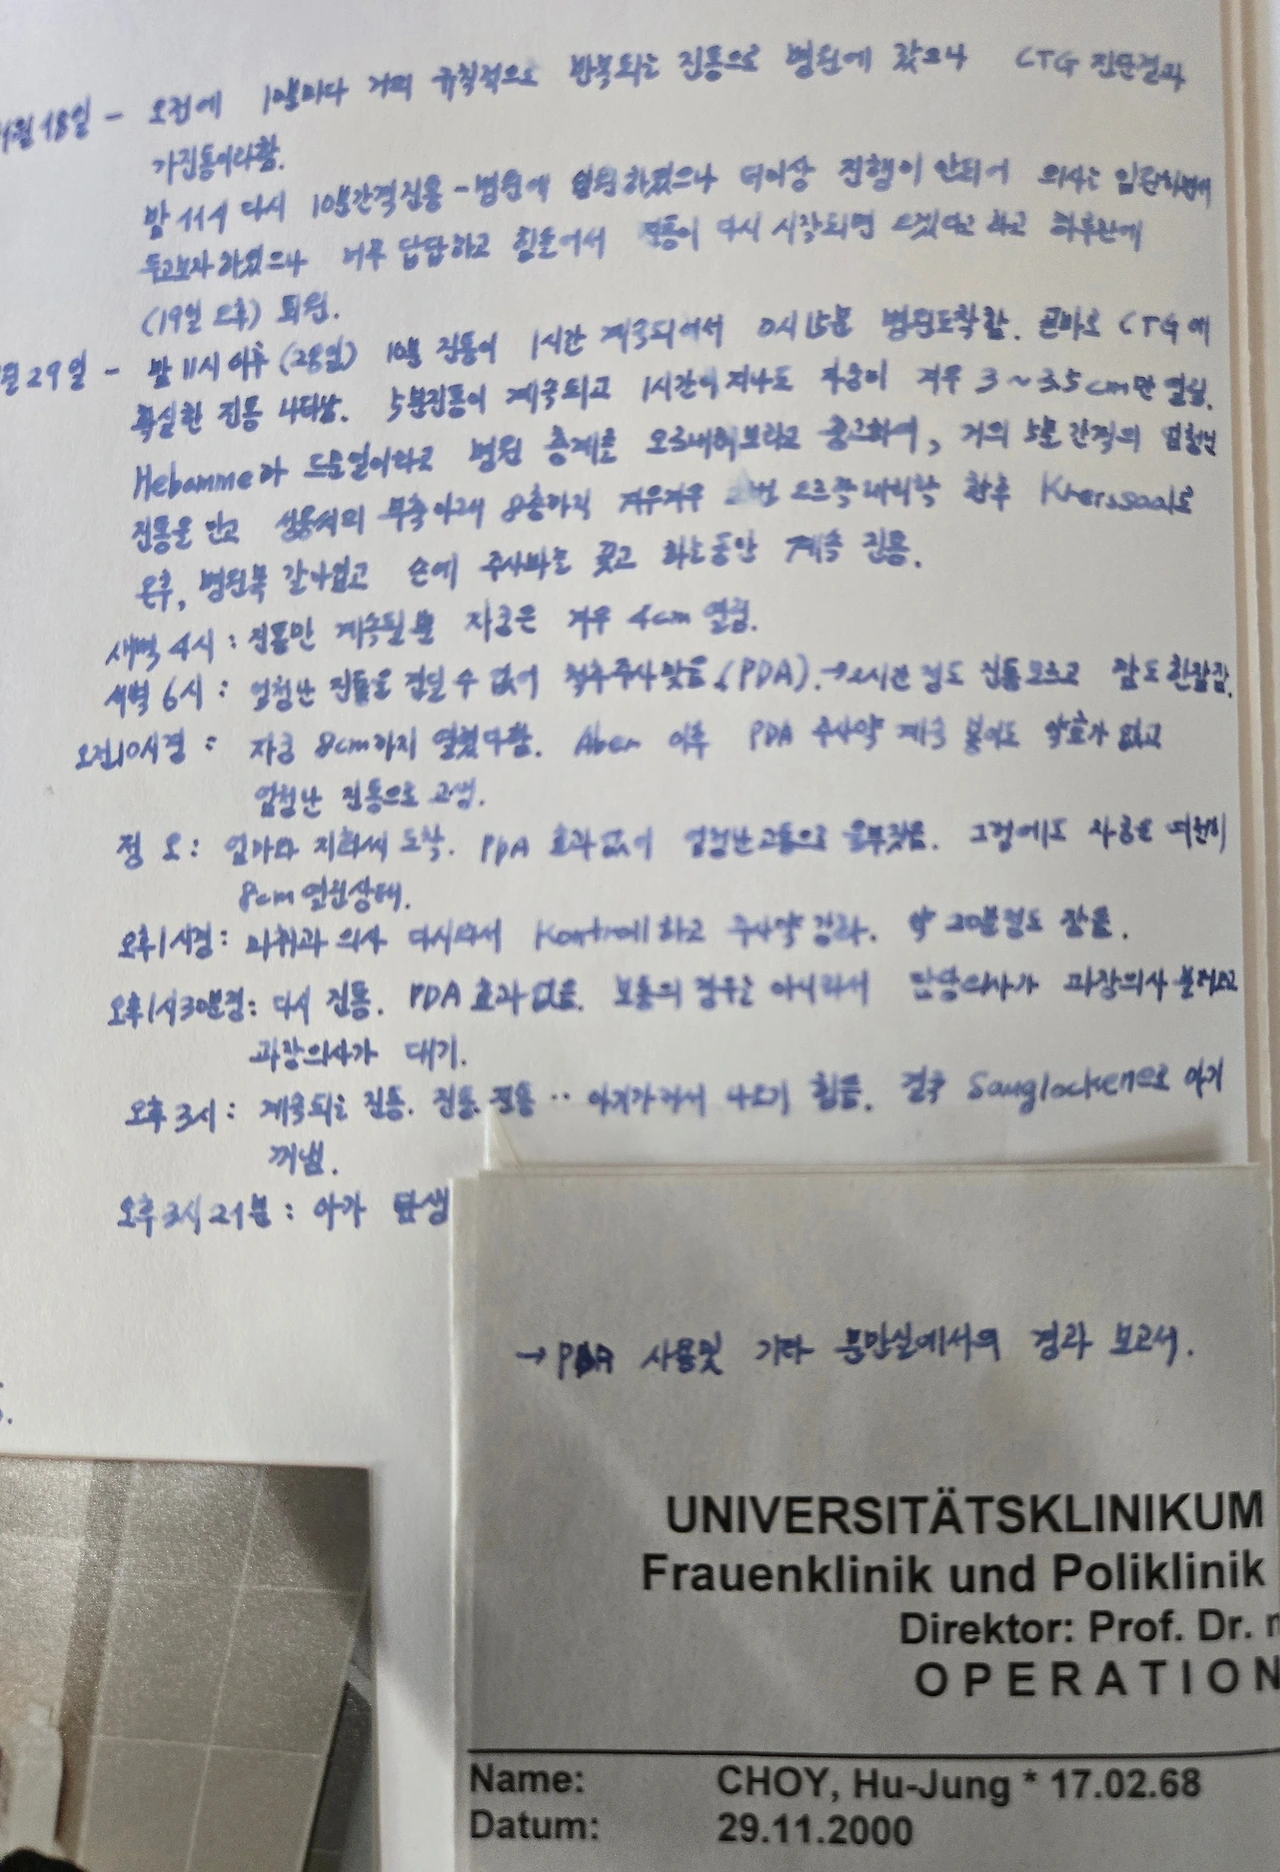 월 18일 - 오전에 10분마다 거의 규칙적으로 반복되는 진통으로 병원에 갔으나 CTG 진단결과
가진통이라함.
밤 11시 다시 10분간격진통 - 병원에 입원하였으나 더이상 진행이 안되어 의사는 입원하면서
두고보자 하였으나 너무 답답하고 힘들어서 진통이 다시 시작되면 오겠다고 하고 하루만에
(19일 오후) 퇴원.
월 29일 - 밤 11시 이후 (28일) 10분 진통이 1시간 계속되어서 0시 15분 병원도착함. 곧바로 CTG에
확실한 진통 나타남. 5분진통이 계속되고 1시간이 지나도 자궁이 겨우 3~3.5cm만 열림.
Hebamme가 드문일이라고 병원 층계를 오르내려보라고 충고하여, 거의 5분 간격의 엄청난
진통을 안고 부축아래 8층까지 겨우겨우 2번 오르락 내리락 한후 Kreissaal로
온후, 병원복 갈아입고 손에 주사바늘 꽂고 하는동안 계속 진통.
새벽 4시 : 진통만 계속될 뿐 자궁은 겨우 4cm 열림.
새벽 6시 : 엄청난 진통을 견딜 수 없어 척추주사 맞음. (PDA). → 2시간 정도 진통모르고 잠도 한잠잠.
오전10시경 : 자궁 8cm까지 열렸다함. Aber 이후 PDA 주사약 계속 넣어도 약효가 없고
엄청난 진통으로 고생.
정 오 : 엄마와 도착. PDA 효과없어 엄청난 고통으로 울부짖음. 그럼에도 자궁은 여전히
8cm 열린상태.
오후1시경 : 마취과 의사 다시와서 Kontroll하고 주사약 갈아. 약 20분정도 잠듦.
오후1시30분경 : 다시 진통. PDA 효과없음. 보통의 경우는 아니라서 담당의사가 과장의사 불러오고
과장의사가 대기.
오후 3시 : 계속되는 진통. 진통. 진통 ·· 아기가 커서 나오기 힘듦. 결국 Sauglocken으로 아기
꺼냄.
오후 3시 21분 : 아가 탄생
→ PDA 사용및 기타 분만실에서의 경과 보고서.
UNIVERSITÄTSKLINIKUM
Frauenklinik und Poliklinik
Direktor: Prof. Dr.
OPERATION
Name: CHOY, Hu-Jung * 17.02.68
Datum: 29.11.2000